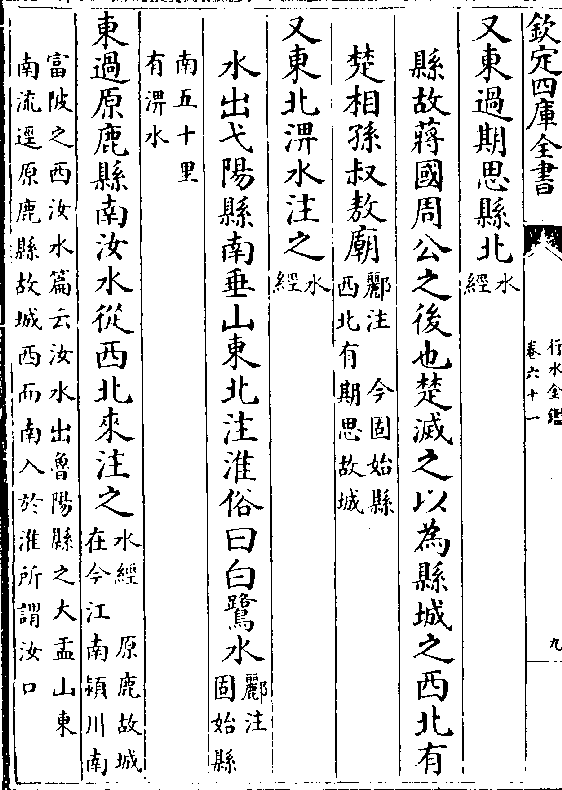 欽定四庫全書
行水金鑑
卷六十一
九
又東過期思縣北
水
經
縣故蔣國周公之後也楚滅之以為縣城之西北有
楚相孫叔敖廟
酈注　今固始縣
西北有期思故城
又東北淠水注之
水
經
水出弋陽縣南垂山東北注淮俗曰白鷺水
酈注
固始縣
南五十里
有淠水
東過原鹿縣南汝水從西北來注之
水經　原鹿故城
在今江南潁川南
富陂之西汝水篇云汝水出魯陽縣之大盂山東
南流逕原鹿縣故城西而南入於淮所謂汝口